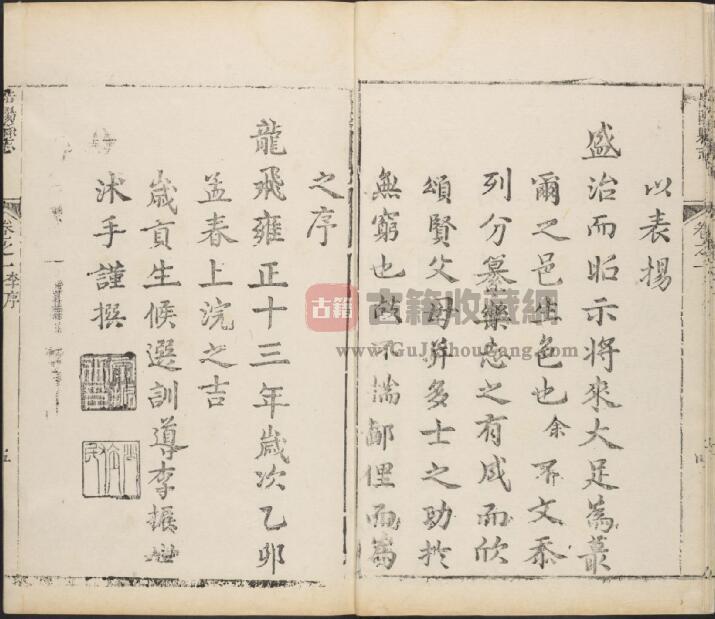 以表揚
盛治而昭示將來大足為蕞
爾之邑生色也余不文忝
列分纂樂志之有成而欣
頌賢父母并多士之助於
無窮也故不揣鄙俚而為
之序
龍飛雍正十三年歲次乙卯
孟春上浣之吉
歲貢生候選訓導李振世
沭手謹撰
卷之一
卷之一 李序
五
四
古籍
古籍收藏網
www.GuJiShouCang.com